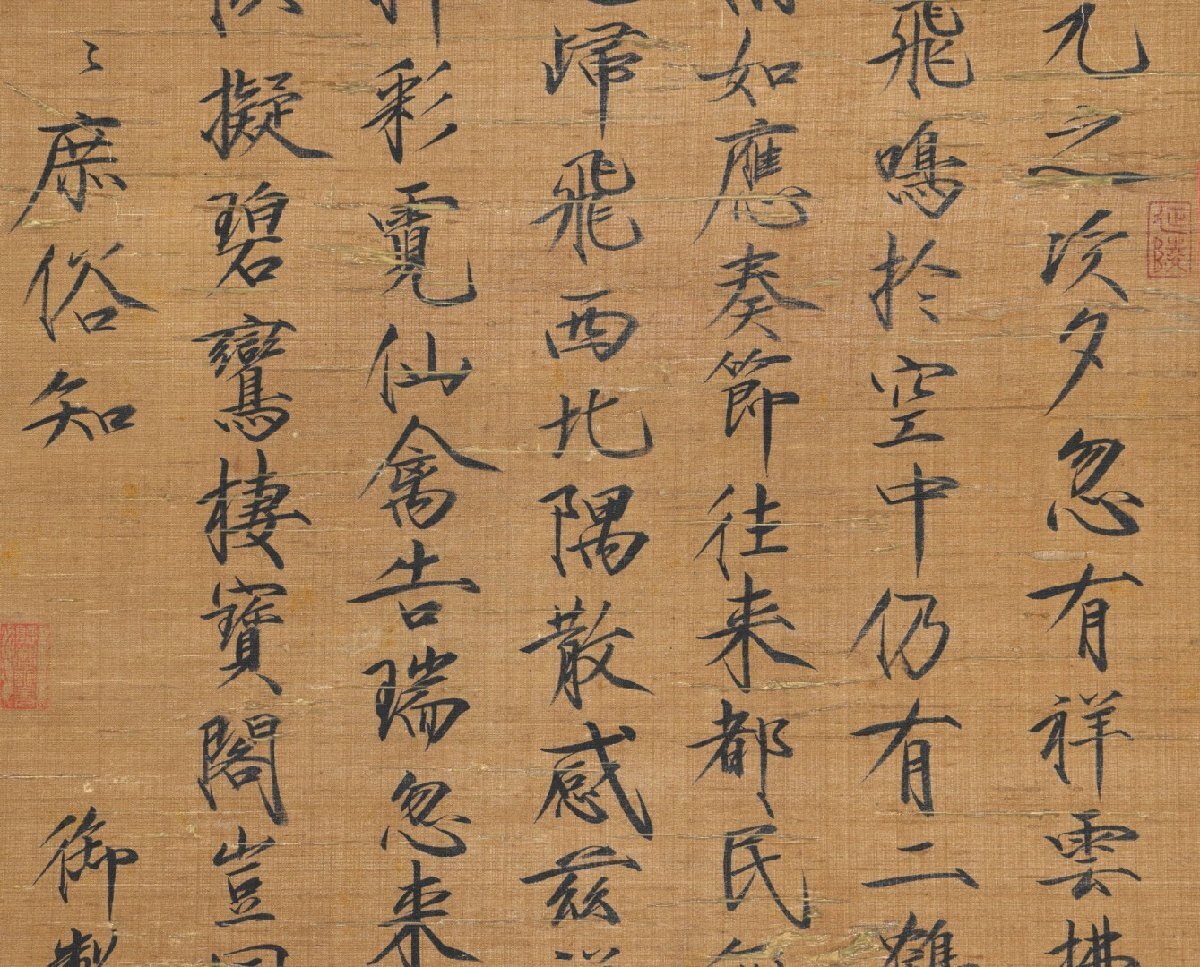 元之次夕忽有祥雲拂
飛鳴於空中仍有二鶴
如應奏節往来都民無
歸飛西北隅散感茲祥
彩霓仙禽告瑞忽来
擬碧鸞棲寶閣豈同
〻庶俗知 御製
延陵